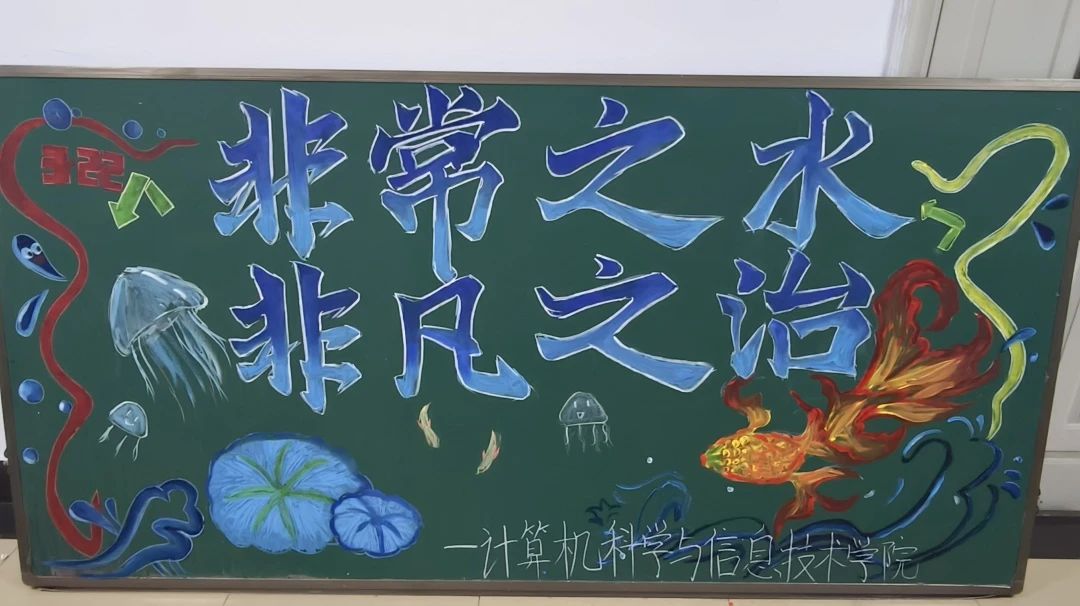 3.22
非常之水
非凡之治
一计算机科学与信息技术学院